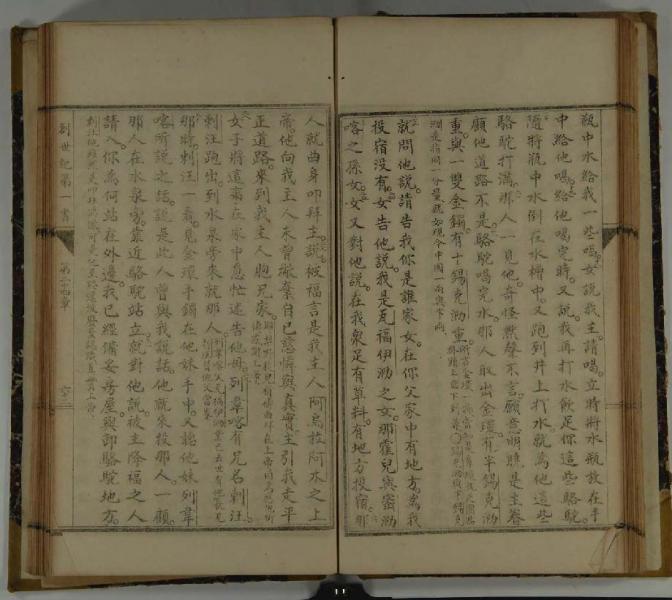 瓶中水給我一些喝女說我主請喝立時將水瓶放在手
中給他喝給他喝完時又說我再打水飲足你這些駱駝
隨將瓶中水倒在水槽中又跑到井上打水就爲他這些
駱駝打滿那人一見他奇怪黙聲不言願意明瞧是主眷
顧他道路不是駱駝喝完水那人取出金環有半錫克泑
重與一雙金鐲有十錫克泑重
就問他說請告我你是誰家女在你父家中有地方爲我
投宿没有女告他說我是瓦福伊泑之女那霍兒與密泑
喀之孫女女又對他說在我衆足有草料有地方投宿那
人就曲身叩拜主說被福言是我主人阿烏拉阿木之上
帝他向我主人未曾撇棄自己慈憐與真實主引我走平
正道路來到我主人胞兄家
女子將這事在家中急忙述告他母列韋喀有兄名剌汪
剌汪跑出到水泉旁來就那人
那時剌汪一看見金環手鐲在他妹手中又聽他妹列韋
喀所說之話說是此人曾與我說話他就來投那人一顧
那人在水泉旁靠近駱駝站立就對他說被主降福之人
請入你爲何站在外邊我已經備妥房屋與卸駱駝地方
創世紀第一書
第二十四章